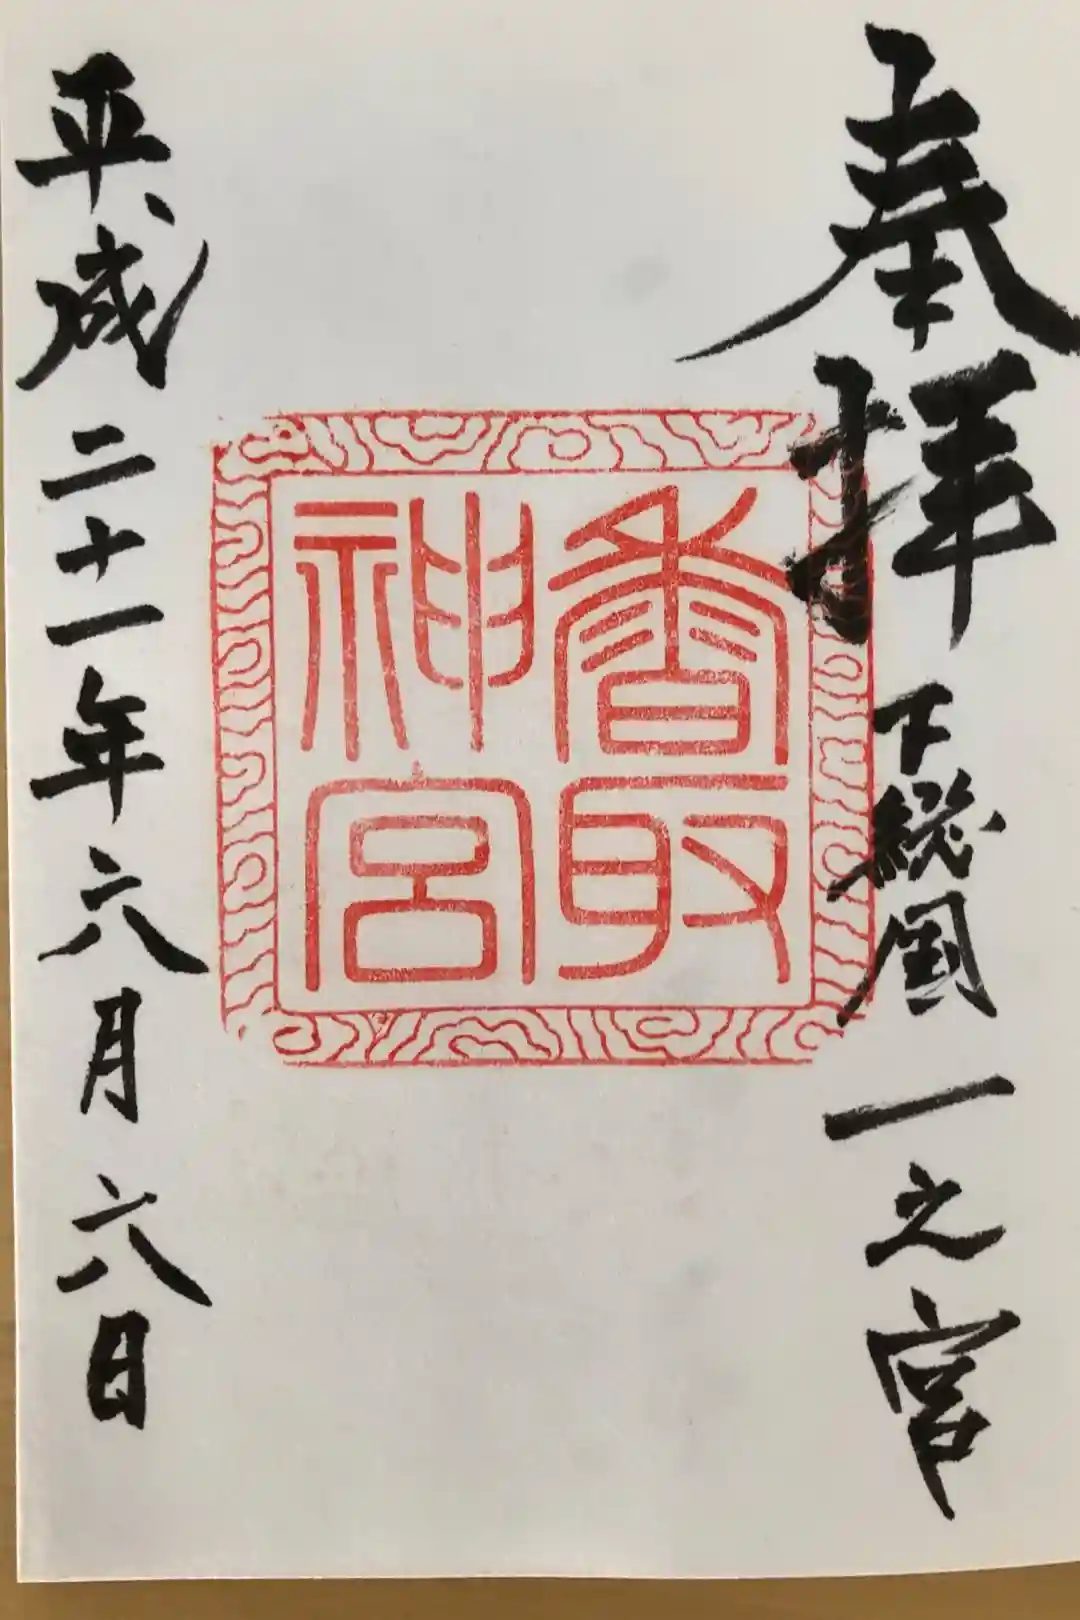 奉拝
下総国一之宮
香取
神宮
平成二十一年六月六日